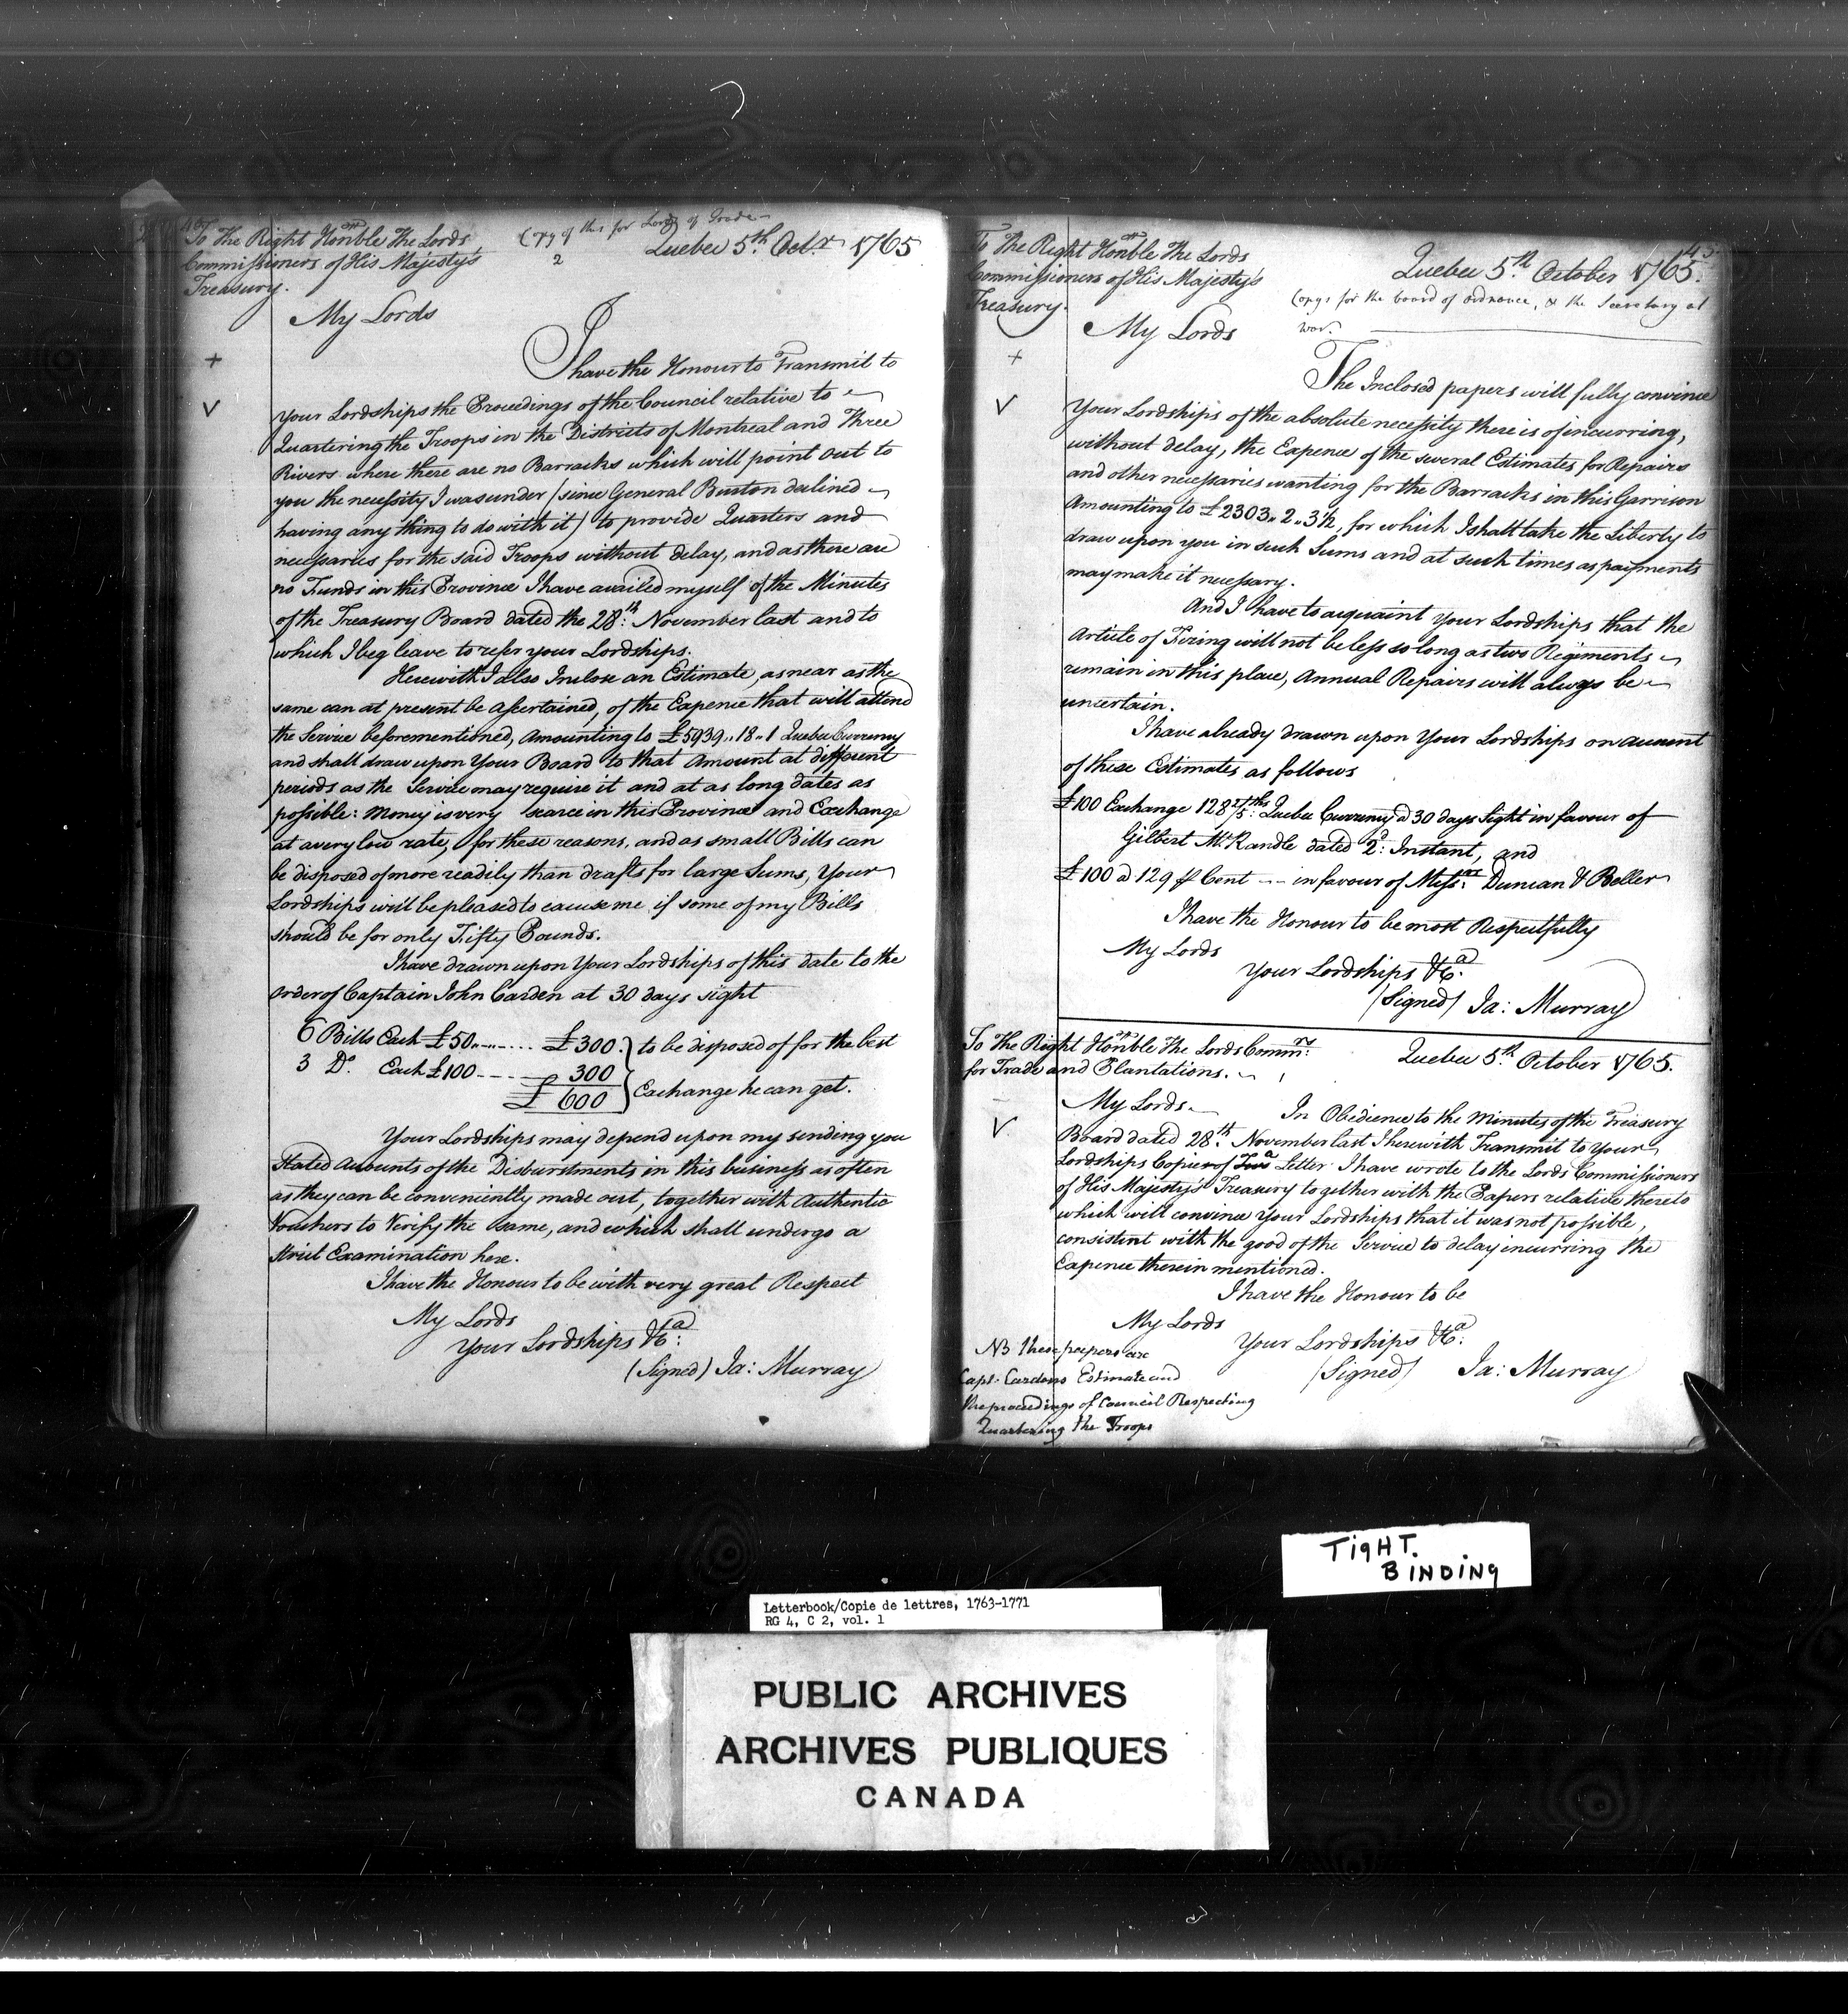 To the Right Hon:ble the Lords
Commissioners of His Majesty's
Treasury.
Copy of this for Lords of Trade
2
Quebec 5th. Octr. 1765
My Lords
+
I have the Honour to Transmit to
V
Your Lordships the Proceedings of the Council relative to
Quartering the Troops in the Districts of Montreal and Three
Rivers where there are no Barracks which will point out to
you the necessity I was under (since General Burton declined
having any thing to do with it) to provide Quarters and
necessaries for the said Troops without delay, and as there are
no Funds in this Province I have availed myself of the Minutes
of the Treasury Board dated the 28th: November last and to
which I beg leave to refer your Lordships.
Herewith I also Inclose an Estimate, as near as the
same can at present be ascertained, of the Expence that will attend
the Service beforementioned, Amounting to £5939,,18,,1 Quebec Currency
and shall draw upon Your Board to that Amount at different
periods as the Service may require it and at as long dates as
possible: Money is very scarce in this Province and Exchange
at a very low rate, for these reasons, and as small Bills can
be disposed of more readily than drafts for large Sums, Your
Lordships will be pleased to excuse me if some of my Bills
should be for only Fifty Pounds.
I have drawn upon Your Lordships of this date to the
order of Captain John Carden at 30 days sight
6 Bills Each £50,,-,,- ... £300. } to be disposed of for the best
3 Do. Each £100 - - - 300 } Exchange he can get.
£600
Your Lordships may depend upon my sending you
Stated Accounts of the Disburstments in this business as often
as they can be conveniently made out, together with Authentic
Vouchers to Verify the same, and which shall undergo a
Strict Examination here.
I have the Honour to be with very great Respect
My Lords
Your Lordships &ca:
(Signed) Ja: Murray
145
To the Right Hon:ble the Lords
Commissioners of His Majesty's
Treasury.
Quebec 5th. October 1765.
Copys for the board of ordnance, & the Secretary at
war.
My Lords
+
The Inclosed papers will fully convince
V
Your Lordships of the absolute necessity there is of incurring,
without delay, the Expence of the several Estimates for Repairs
and other necessaries wanting for the Barracks in this Garrison
Amounting to £2303,,2,,3½, for which I shall take the Liberty to
draw upon you in such Sums and at such times as payments
may make it necessary.
And I have to acquaint Your Lordships that the
Article of Firing will not be less so long as two Regiments
remain in this place, Annual Repairs will always be
uncertain.
I have already drawn upon Your Lordships on account
of these Estimates as follows
£100 Exchange 128 2/5ths: Quebec Currency @ 30 days Sight in favour of
Gilbert McRandle dated 2d: Instant, and
£100 @ 129 ⅌ Cent --- in favour of Messrs: Duncan & Beller
I have the Honour to be most Respectfully
My Lords
Your Lordships &ca:
(Signed) Ja: Murray
To the Right Hon:ble the Lords Commrs:
for Trade and Plantations.
Quebec 5th October 1765.
My Lords.
In Obedience to the Minutes of the Treasury
V
Board dated 28th. November last I herewith Transmit to Your
Lordships Copies of Two a Letter I have wrote to the Lords Commissioners
of His Majesty's Treasury together with the Papers relative thereto
which will convince Your Lordships that it was not possible,
consistent with the good of the Service to delay incurring the
Expence therein mentioned.
I have the Honour to be
My Lords
Your Lordships &ca:
(Signed) Ja: Murray
NB These papers are
Capt. Cardens Estimate and
the proceedings of Council Respecting
Quartering the Troops
TIGHT.
BINDING
Letterbook/Copie de lettres, 1763-1771
RG 4, C 2, vol. 1
PUBLIC ARCHIVES
ARCHIVES PUBLIQUES
CANADA